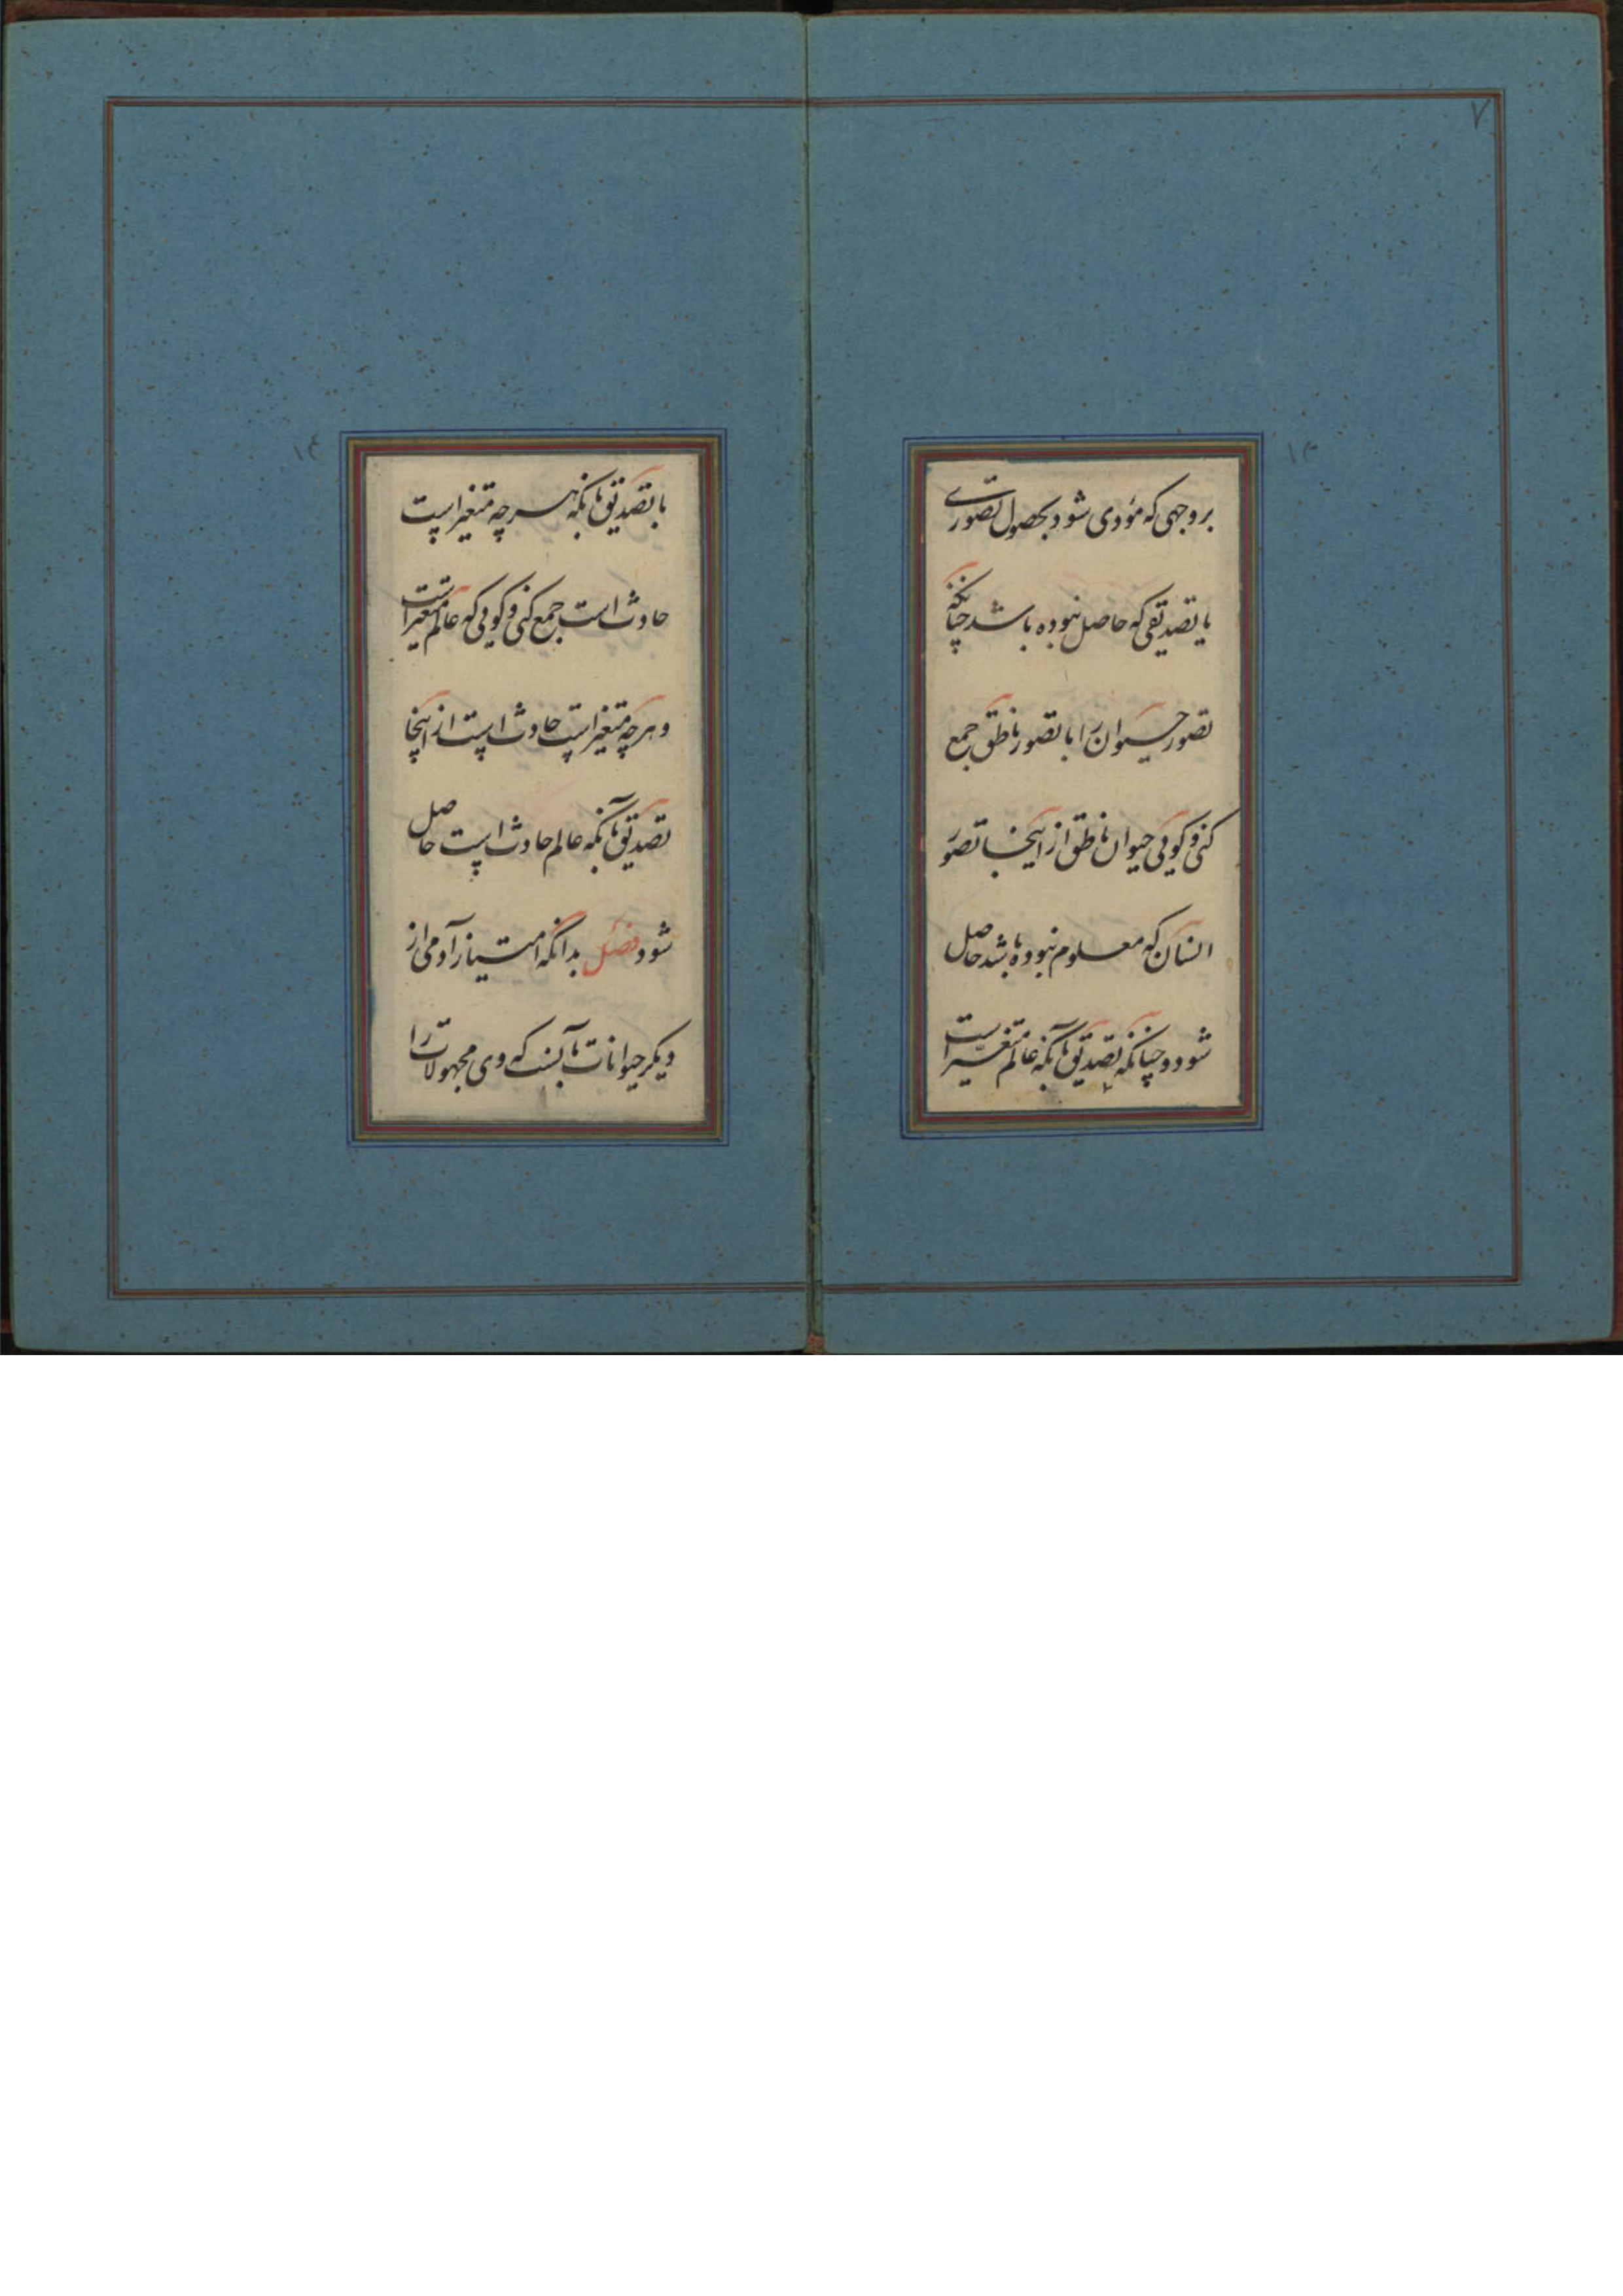 ۷
۱۳
بر وجهی که مؤدی شود بحصول تصوری
یا تصدیقی که حاصل نبوده باشد چنانکه
تصور حیوان را با تصور ناطق جمع
کنی و کویی حیوان ناطق از اینجا تصوّر
انسان که معلوم نبوده باشد حاصل
شود و چنانکه تصدیق بآنکه عالم متغیّر است
۱۴
با تصدیق بانکه هر چه متغیر است
حادث است جمع کنی و کویی که عالم متغیر است
و هر چه متغیر است حادث است از اینجا
تصدیق بآنکه عالم حادث است حاصل
شود فصل بدانکه امتیاز آدمی از
دیکر حیوانات بآنست که وی مجهولات را